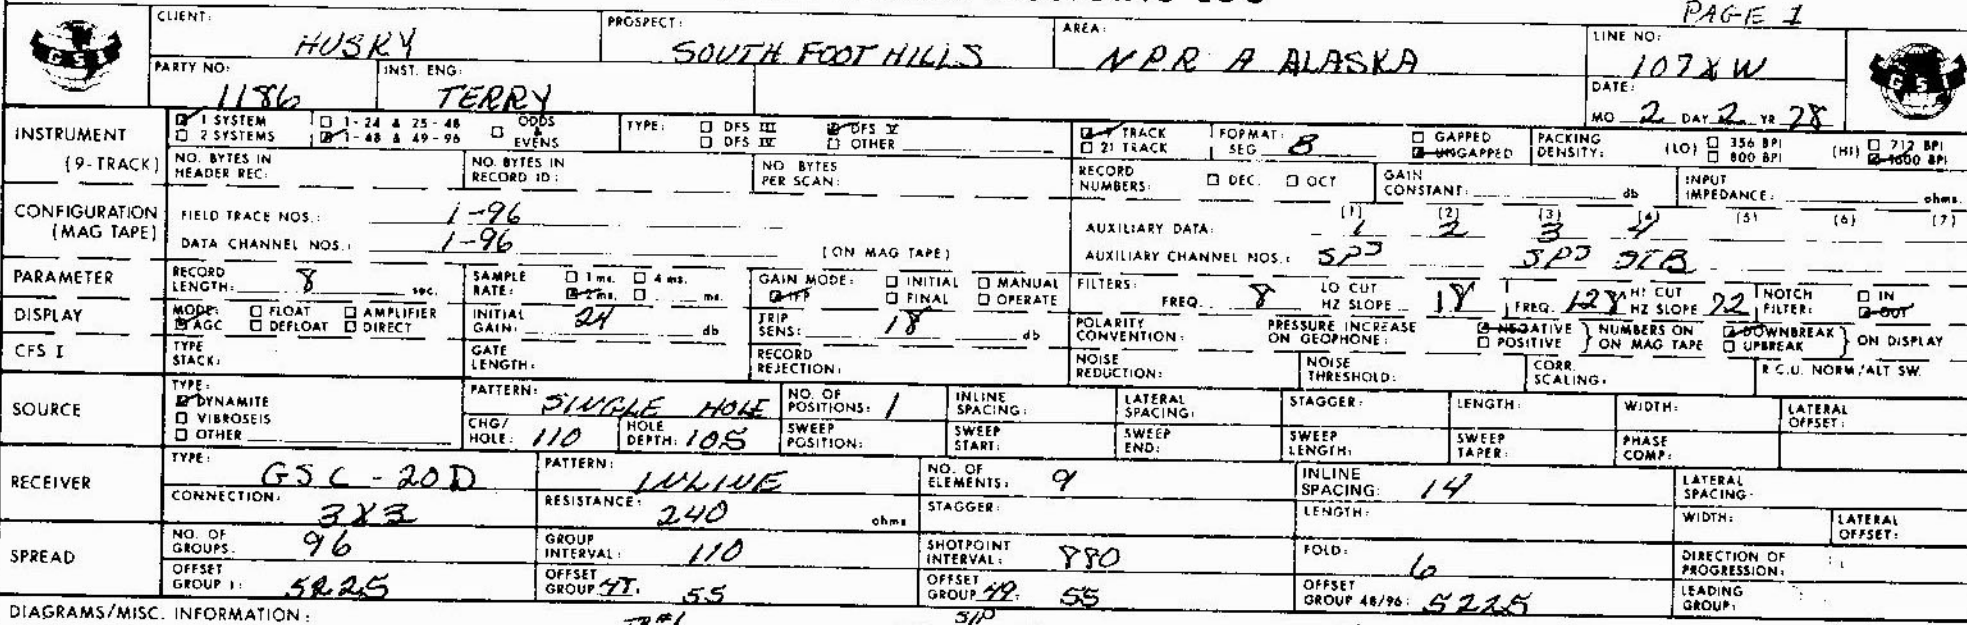 PAGE 1
GSI
CLIENT: HUSKY PROSPECT: SOUTH FOOT HILLS AREA: NPR A ALASKA LINE NO: 107XW
PARTY NO: 1186 INST. ENG: TERRY DATE: MO 2 DAY 2 YR 78
GSI
INSTRUMENT (9-TRACK)
1 SYSTEM 1-24 & 25-48 ODDS & EVENS TYPE: DFS III DFS V 9 TRACK FORMAT: SEG B GAPPED PACKING DENSITY: (LO) 356 BPI (HI) 712 BPI
2 SYSTEMS 1-48 & 49-96 DFS IV OTHER 21 TRACK UNGAPPED 800 BPI 1600 BPI
NO. BYTES IN HEADER REC: NO. BYTES IN RECORD ID: NO BYTES PER SCAN: RECORD NUMBERS: DEC. OCT GAIN CONSTANT: db INPUT IMPEDANCE: ohms.
CONFIGURATION (MAG TAPE)
FIELD TRACE NOS.: 1-96 AUXILIARY DATA: (1) 1 (2) 2 (3) 3 (4) 4 (5) (6) (7)
DATA CHANNEL NOS.: 1-96 (ON MAG TAPE) AUXILIARY CHANNEL NOS.:
PARAMETER
RECORD LENGTH: 8 sec. SAMPLE RATE: 1 ms. 4 ms. 2 ms. ms. GAIN MODE: INITIAL MANUAL IFP FINAL OPERATE FILTERS: FREQ. 8 LO CUT HZ SLOPE 18 FREQ. 128 HI CUT HZ SLOPE 72 NOTCH FILTER: IN OUT
DISPLAY
MODE: FLOAT AMPLIFIER AGC DEFLOAT DIRECT INITIAL GAIN: 24 db TRIP SENS: 18 db POLARITY CONVENTION: PRESSURE INCREASE ON GEOPHONE: NEGATIVE POSITIVE } NUMBERS ON MAG TAPE DOWNBREAK UPBREAK } ON DISPLAY
CFS I
TYPE STACK: GATE LENGTH: RECORD REJECTION: NOISE REDUCTION: NOISE THRESHOLD: CORR. SCALING: R.C.U. NORM/ALT SW.
SOURCE
TYPE: DYNAMITE VIBROSEIS OTHER PATTERN: SINGLE HOLE NO. OF POSITIONS: 1 INLINE SPACING: LATERAL SPACING: STAGGER: LENGTH: WIDTH: LATERAL OFFSET:
CHG/HOLE: 110 HOLE DEPTH: 105 SWEEP POSITION: SWEEP START: SWEEP END: SWEEP LENGTH: SWEEP TAPER: PHASE COMP:
RECEIVER
TYPE: GSC-20D PATTERN: INLINE NO. OF ELEMENTS: 9 INLINE SPACING: 14 LATERAL SPACING:
CONNECTION: 3X3 RESISTANCE: 240 ohms STAGGER: LENGTH: WIDTH: LATERAL OFFSET:
SPREAD
NO. OF GROUPS: 96 GROUP INTERVAL: 110 SHOTPOINT INTERVAL: 880 FOLD: 6 DIRECTION OF PROGRESSION:
OFFSET GROUP 1: 5225 OFFSET GROUP 48: 55 OFFSET GROUP 49: 55 OFFSET GROUP 48/96: 5225 LEADING GROUP:
DIAGRAMS/MISC. INFORMATION: TR#1 S/P